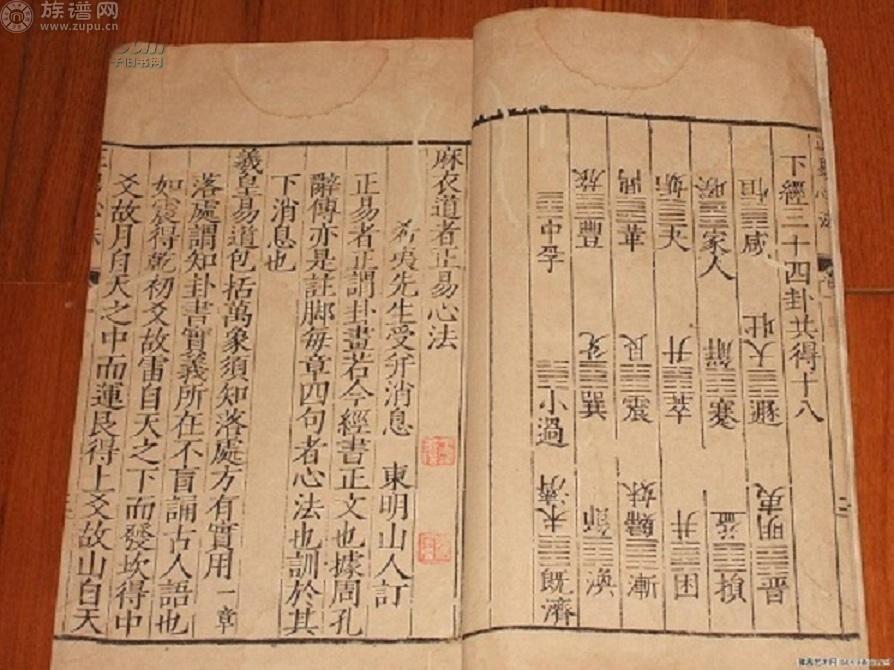 下經三十四卦共得十八
恒 咸 大壯 遯 明夷 晉
睽 家人 解 蹇 益 損
姤 夬 升 萃 井 困
鼎 革 艮 震 歸妹 漸
旅 豐 兌 巽 節 渙
中孚 小過 未濟 既濟
麻衣道者正易心法
希夷先生受并消息 東明山人訂
正易者正謂卦畫若今經書正文也據周孔
辭傳亦是註脚每章四句者心法也訓於其
下消息也
羲皇易道包括萬象須知落處方有實用 一章
落處謂知卦畫實義所在不盲誦古人語也
如震得乾初爻故雷自天之下而發坎得中
爻故月自天之中而運艮得上爻故山自天
族谱网
www.zupu.cn